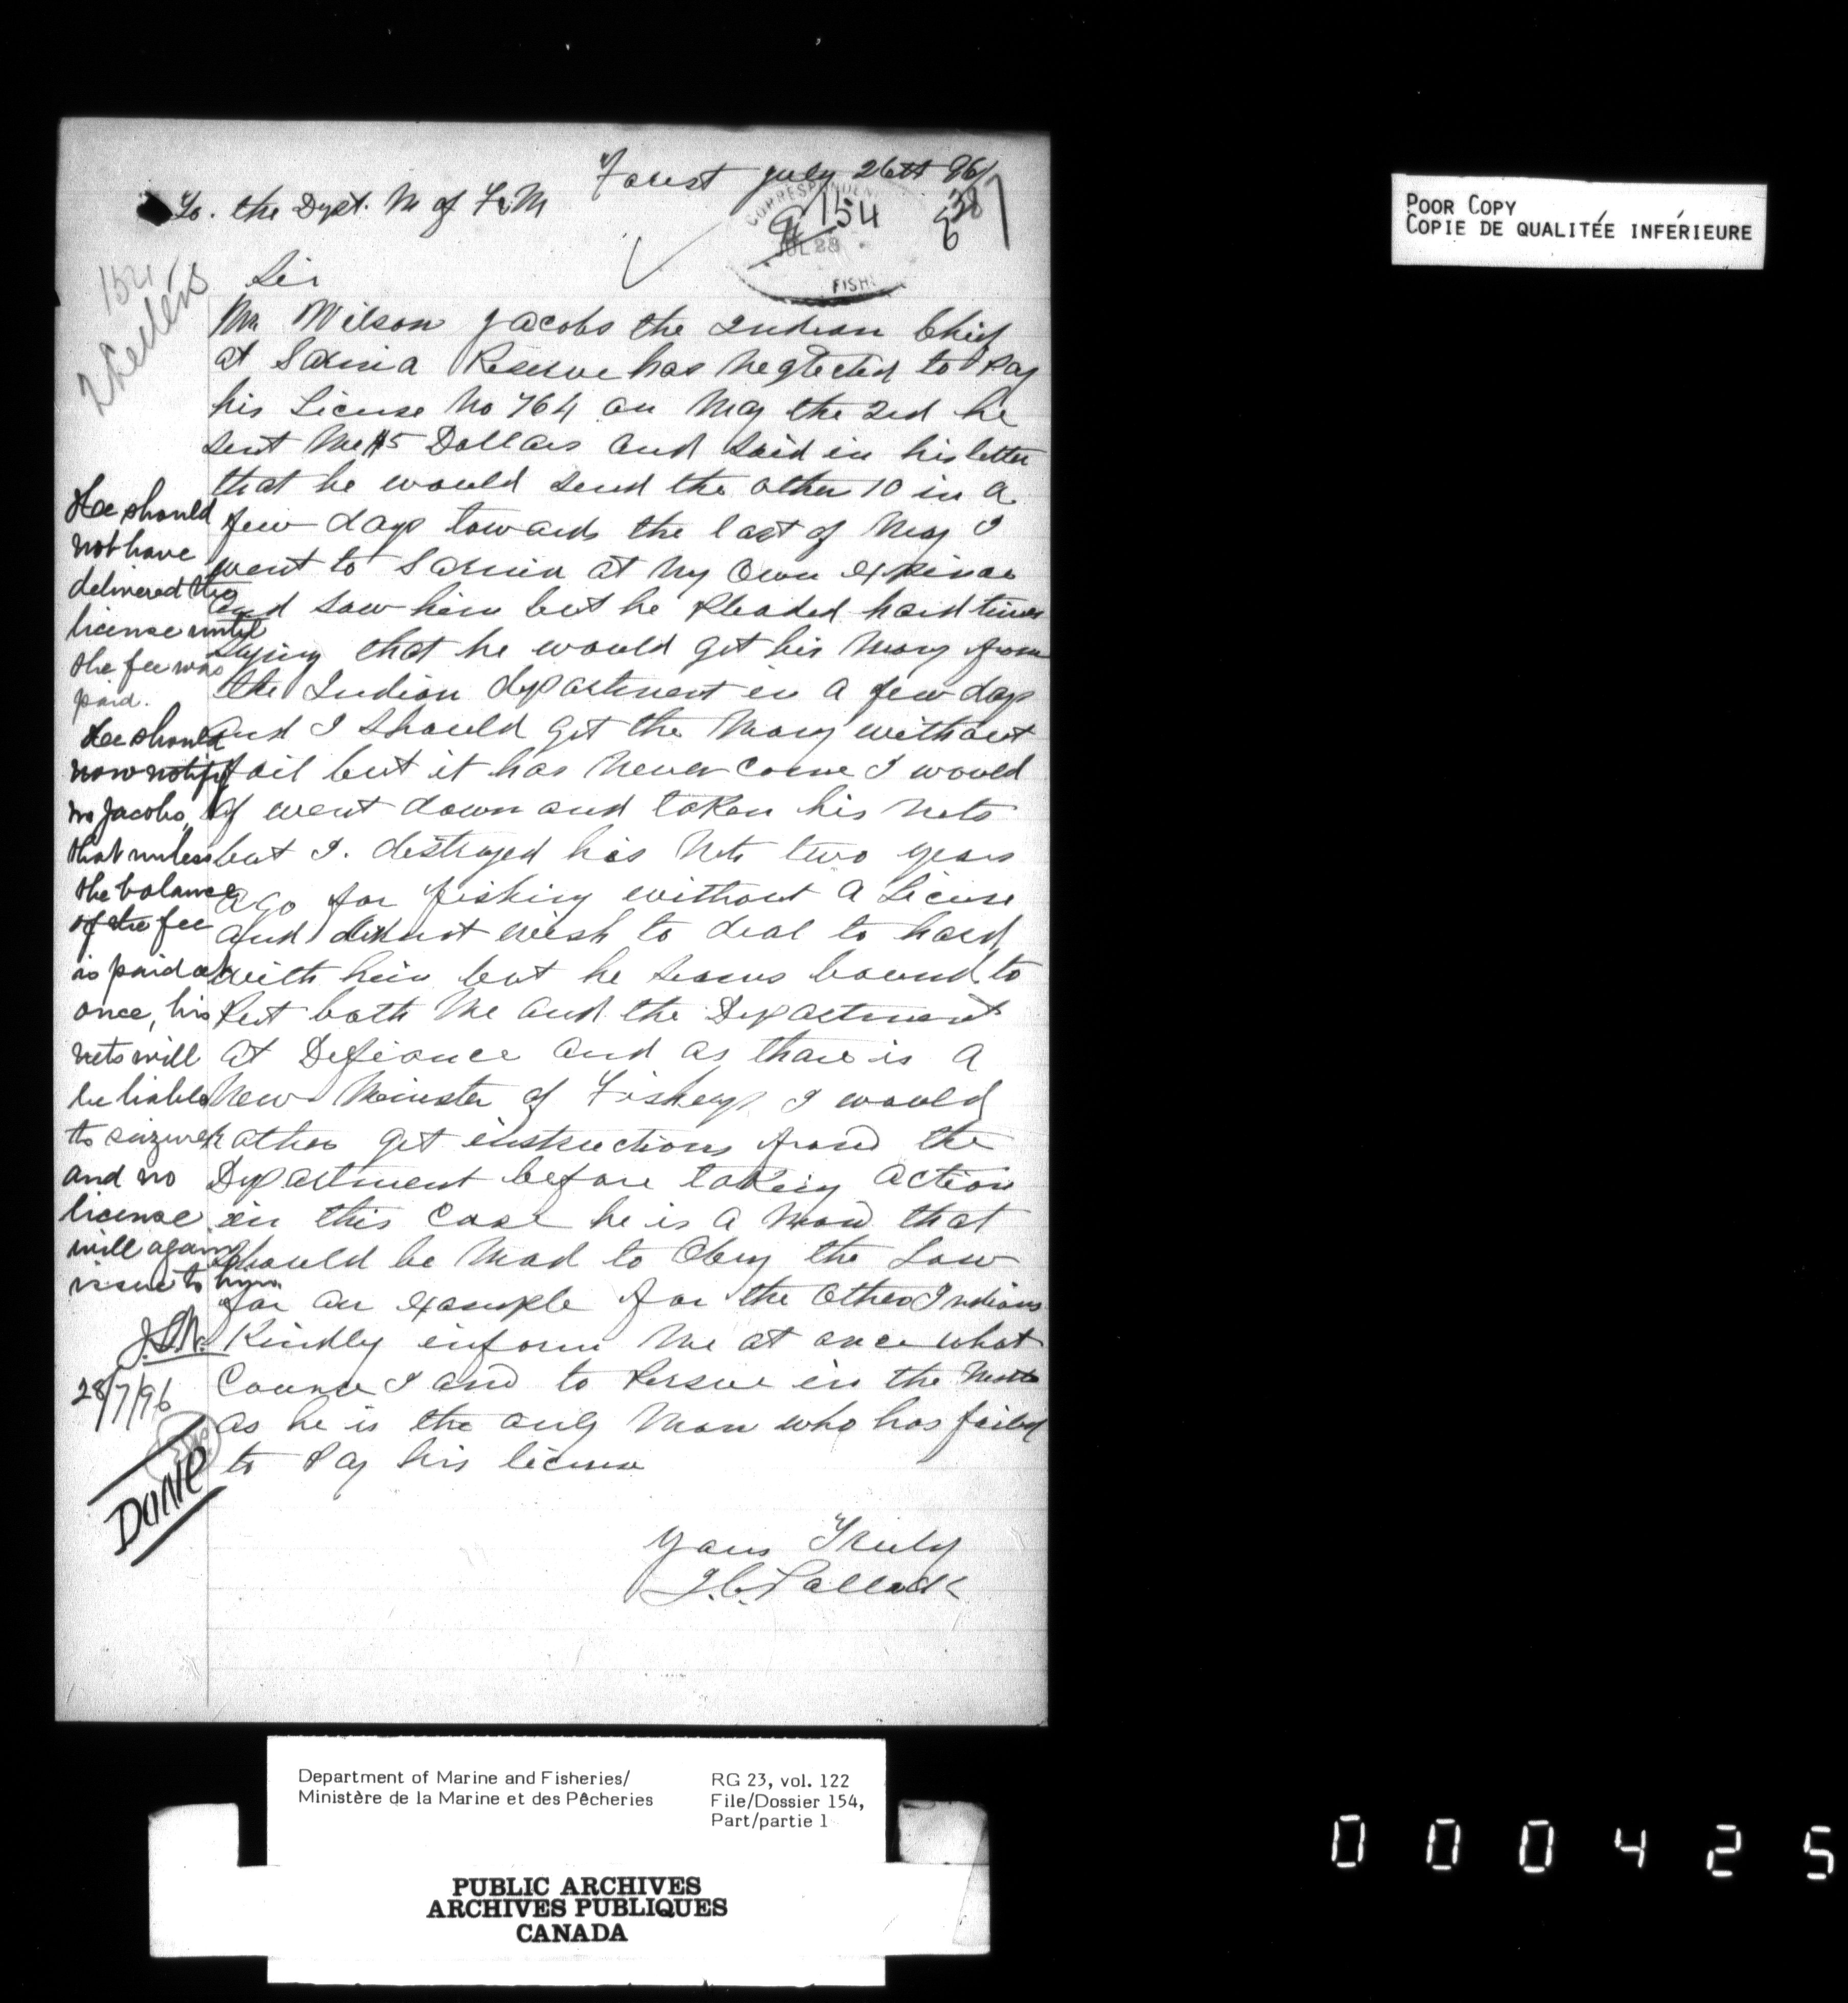 Forest July 26th 96
To. the Dept. M of F & M
CORRESPONDEN
154
JUL 28
FISH
Sir
Mr Wilson Jacobs the Indian Chief
at Sarnia Reserve has neglected to Pay
his License No 764 on May the 2ed he
sent me $5 Dollars and said in his letter
that he would send the other 10 in a
few days towards the last of May I
went to Sarnia at my own expense
and saw him but he Pleaded hard times
saying that he would get his mony from
the Indian department in a few days
and I should get the mony without
fail but it has never come I would
of went down and taken his nets
but I. destroyed his nets two years
ago for fishing without a License
and did not wish to deal to hard
with him but he seams bound to
Put both me and the Department
at Defiance and as thare is a
new Minister of Fisherys I would
rather get instructions from the
Department before taking action
in this Case he is a man that
should be mad to obey the Law
for an example for the other Indians
Kindly inform me at once what
Course I am to Persue in the
as he is the only man who has failed
to Pay his license
Yours Truly
J.C. Pollock
154
2 letters
He should
not have
delivered the
license until
the fee was
paid.
He should
now notify
Mr Jacobs,
that unless
the balance
of the fee
is paid at
once, his
nets will
be liable
to seizure
and no
license
will again
issue to him
28/7/96
Done
POOR COPY
COPIE DE QUALITÉE INFÉRIEURE
Department of Marine and Fisheries/
Ministère de la Marine et des Pêcheries
RG 23, vol. 122
File/Dossier 154,
Part/partie 1
PUBLIC ARCHIVES
ARCHIVES PUBLIQUES
CANADA
000425